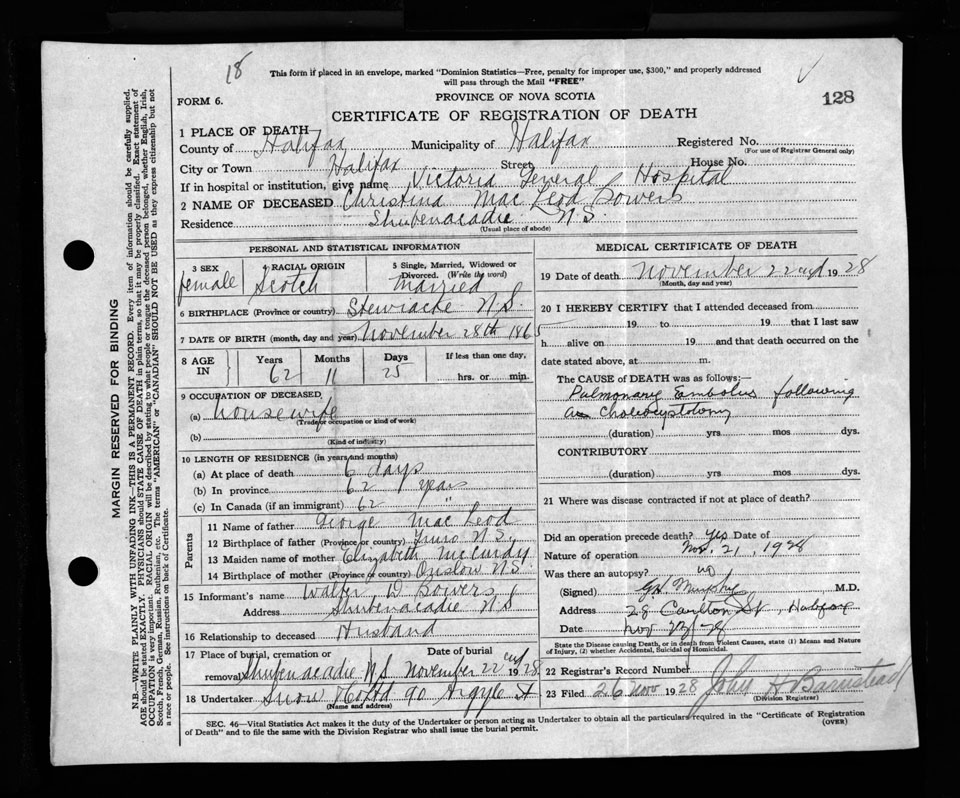 18
This form if placed in an envelope, marked "Dominion Statistics—Free, penalty for improper use, $300," and properly addressed
will pass through the Mail "FREE"
FORM 6.
PROVINCE OF NOVA SCOTIA
128
CERTIFICATE OF REGISTRATION OF DEATH
1 PLACE OF DEATH
County of Halifax Municipality of Halifax Registered No.
(For use of Registrar General only)
City or Town Halifax Street House No.
If in hospital or institution, give name Victoria General Hospital
2 NAME OF DECEASED Christina Mac Leod Bowers
Residence Shubenacadie N.S.
(Usual place of abode)
MARGIN RESERVED FOR BINDING
N.B.—WRITE PLAINLY WITH UNFADING INK—THIS IS A PERMANENT RECORD. Every item of information should be carefully supplied.
AGE should be stated EXACTLY. PHYSICIANS should STATE CAUSE OF DEATH in plain terms, so that it may be properly classified. Exact statement of
OCCUPATION is very important. RACIAL ORIGIN will be described by stating to what people or tongue the deceased person belonged, whether English, Irish,
Scotch, French, German, Russian, Ruthenian, etc. The terms "AMERICAN" or "CANADIAN" SHOULD NOT BE USED as they express citizenship but not
a race or people. See instructions on back of Certificate.
PERSONAL AND STATISTICAL INFORMATION
3 SEX
female
4 RACIAL ORIGIN
Scotch
5 Single, Married, Widowed or
Divorced. (Write the word)
Married
6 BIRTHPLACE (Province or country) Stewiacke N.S.
7 DATE OF BIRTH (month, day and year) November 28th 1865
8 AGE IN
Years Months Days If less than one day,
62 11 25 hrs. or min.
9 OCCUPATION OF DECEASED
(a) housewife
(Trade or occupation or kind of work)
(b)
(Kind of industry)
10 LENGTH OF RESIDENCE (in years and months)
(a) At place of death 6 days
(b) In province 62 years
(c) In Canada (if an immigrant) 62 "
Parents
11 Name of father George Mac Leod
12 Birthplace of father (Province or country) Truro N.S.
13 Maiden name of mother Elizabeth McCurdy
14 Birthplace of mother (Province or country) Onslow N.S.
15 Informant's name Walter D Bowers
Address Shubenacadie N S
16 Relationship to deceased Husband
17 Place of burial, cremation or Date of burial
removal Shubenacadie N S November 22nd 1928
18 Undertaker Snow & Co Ltd 90 Argyle St
(Name and address)
MEDICAL CERTIFICATE OF DEATH
19 Date of death November 22nd 1928
(Month, day and year)
20 I HEREBY CERTIFY that I attended deceased from
19 to 19 that I last saw
h alive on 19 and that death occurred on the
date stated above, at m.
The CAUSE OF DEATH was as follows:—
Pulmonary Embolus following
Cholecystotomy
(duration) yrs mos dys.
CONTRIBUTORY
(duration) yrs mos dys.
21 Where was disease contracted if not at place of death?
Did an operation precede death? yes Date of
Nov. 21, 1928
Nature of operation
Was there an autopsy? no
(Signed) Murphy M.D.
Address 28 Carlton St, Halifax
Date Nov
State the Disease causing Death, or in death from Violent Causes, state (1) Means and Nature
of Injury, (2) whether Accidental, Suicidal or Homicidal.
22 Registrar's Record Number
23 Filed 26 Nov 1928 John A Barnstead
(Division Registrar)
SEC. 46—Vital Statistics Act makes it the duty of the Undertaker or person acting as Undertaker to obtain all the particulars required in the "Certificate of Registration
of Death" and to file the same with the Division Registrar who shall issue the burial permit. (OVER)